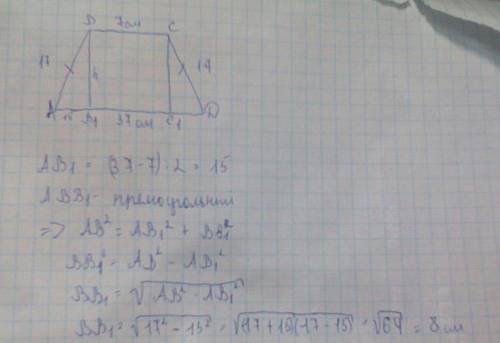 B 7см C
17 h 17
A 15 B₁ 37см C₁ D
AB₁ = (37-7) : 2 = 15
ABB₁ - прямоугольный
=> AB² = AB₁² + BB₁²
BB₁² = AB² - AB₁²
BB₁ = √(AB² - AB₁²)
BB₁ = √(17² - 15²) = √((17+15)(17-15)) = √64 = 8см